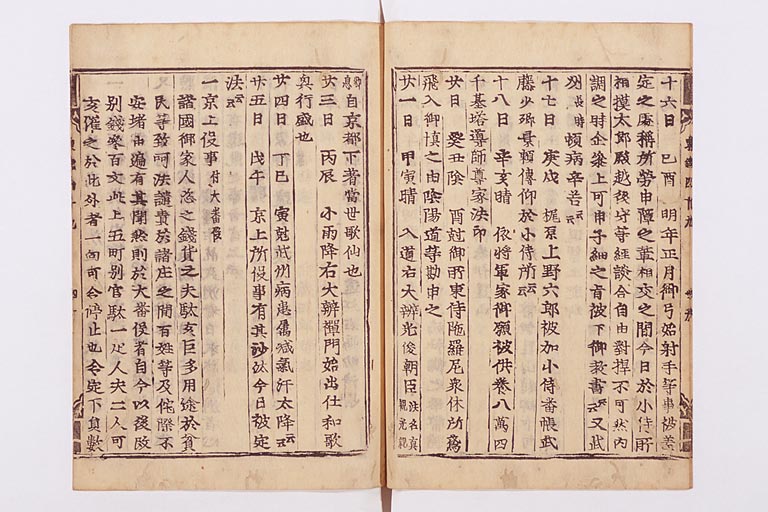 十六日　己酉　明年正月御弓始射手等事被差
定之處称所勞申障之輩相交之間今日於小侍所
相摸太郎殿越後守等經談合自由對捍不可然內
調之時企參上可申子細之旨被下御教書云云又武
州長時頓病辛苦云云
十七日　庚戌　梶原上野六郎被加小侍番帳武
藤少卿景頼傳仰於小侍所云云
十八日　辛亥晴　依將軍家御願被供養八萬四
千基塔導師尊家法印
廿日　癸丑陰　酉尅御所東侍陁羅尼衆休所鷺
飛入御慎之由陰陽道等勘申之
廿一日　甲寅晴　入道右大辨光俊朝臣法名真觀光親
卿息自京都下著當世歌仙也
廿三日　丙辰　小雨降右大辨禪門始出仕和歌
興行盛也
廿四日　丁巳　寅尅武州病患屬減氣汗太降云云
廿五日　戊午　京上所役事有其沙汰今日被定
法云云
一京上役事付大番役
諸國御家人恣云錢貨云夫駄充巨多用途於貧
民等致呵法譴責於諸庄之間百姓等及侘傺不
安堵由遍有其聞然則於大番役者自今以後段
別錢參百文此上五町別官駄一疋人夫二人可
充催之於此外者一向可令停止也令定下員數